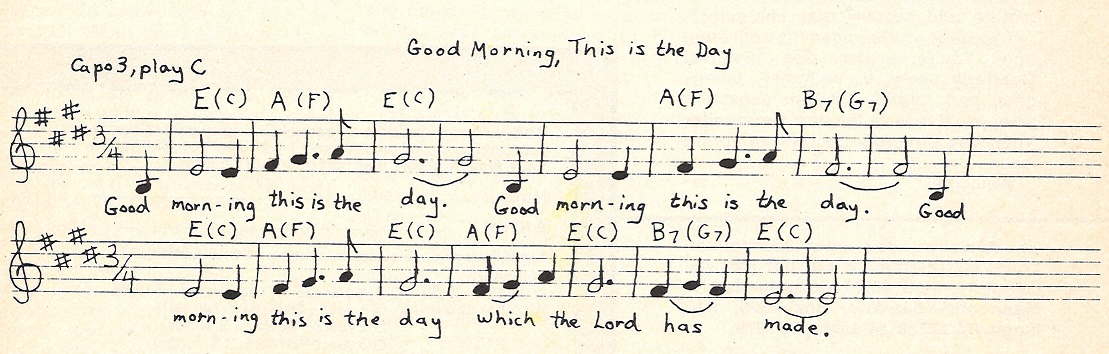 Good Morning, This is the Day
Capo 3, play C
E(C) A(F) E(C) A(F) B7(G7)
3/4
Good morn-ing this is the day. Good morn-ing this is the day. Good
E(C) A(F) E(C) A(F) E(C) B7(G7) E(C)
3/4
morn-ing this is the day which the Lord has made.